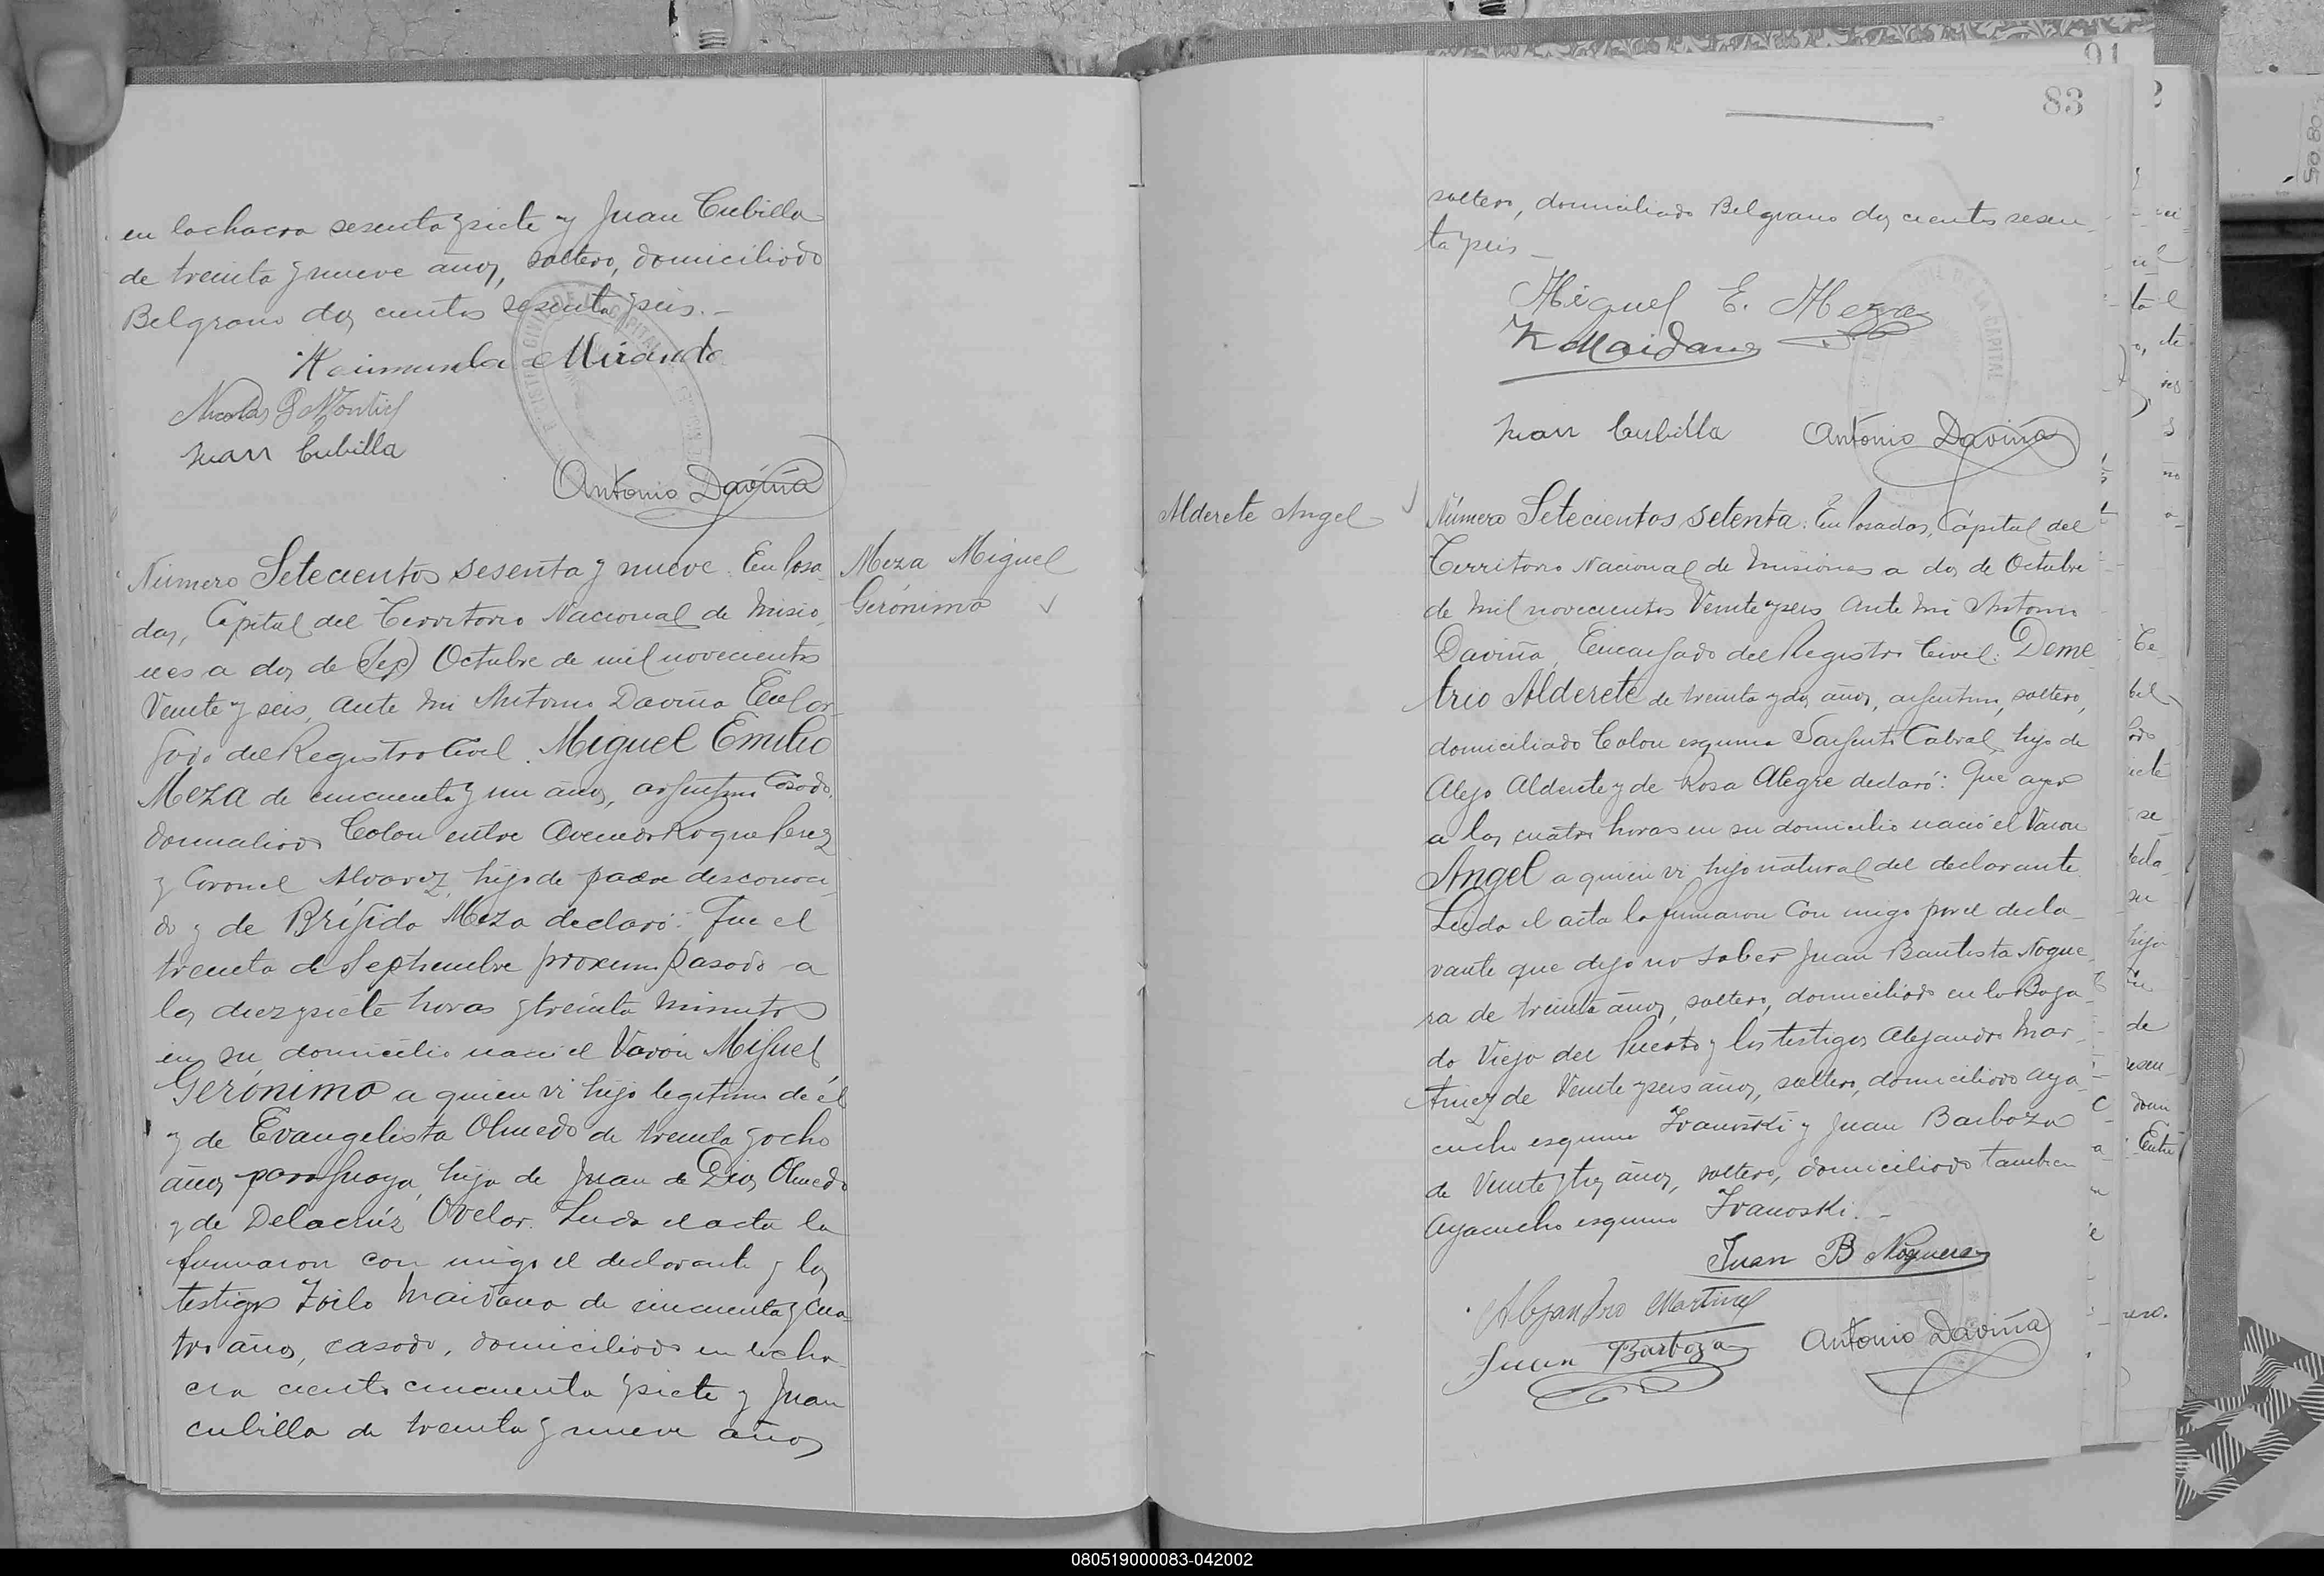 en la chacra sesenta y siete y Juan Cubilla
de treinta y nueve años, soltero, domiciliado
Belgrano dos cientos sesenta y seis.-
Raimunda Miranda
Nicolás Montiel
Juan Cubilla
Antonio Daviña
Número Setecientos sesenta y nueve. En Posa
das, Capital del Territorio Nacional de Misio
nes a dos de (Sep) Octubre de mil novecientos
Veinte y seis, ante mi Antonio Daviña Encar
gado del Registro Civil. Miguel Emilio
Meza de cincuenta y un años, argentino casado,
domiciliado Colon entre Avenida Roque Perez
y Coronel Alvarez, hijo de padre desconoci
do y de Brígida Meza declaró: Que el
treinta de Septiembre proximo pasado a
las diez y siete horas y treinta minutos
en su domicilio nació el Varón Miguel
Gerónimo a quien vi hijo legitimo de él
y de Evangelista Olmedo de treinta y ocho
años paraguaya, hija de Juan de Dios Olmedo
y de Delacrúz Ovelar. Leida el acta la
firmaron con migo el declarante y los
testigos Zoilo Maidana de cincuenta y cua
tro años, casado, domiciliado en la cha
cra ciento cincuenta y siete y Juan
Cubilla de treinta y nueve años
Meza Miguel
Gerónimo
91
83
soltero, domiciliado Belgrano dos cientos sesen
ta y seis -
Miguel E. Meza
Z Maidana
Juan Cubilla Antonio Daviña
Alderete Angel
Número Setecientos setenta: En Posadas, Capital del
Territorio Nacional de Misiones a dos de Octubre
de mil novecientos Veinte y seis ante mi Antonio
Daviña, Encargado del Registro Civil: Deme
trio Alderete de treinta y dos años, argentino, soltero,
domiciliado Colon esquina Sargento Cabral hijo de
Alejo Alderete y de Rosa Alegre declaró: Que ayer
a las cuatro horas en su domicilio nació el Varon
Angel a quien vi hijo natural del declarante.
Leida el acta la firmaron con migo por el decla
rante que dijo no saber Juan Bautista Nogue
ra de treinta años, soltero, domiciliado en la Baja
da Vieja del Puerto y los testigos Alejandro Mar
tinez de Veinte y seis años, soltero, domiciliado Aya
cucho esquina Ivanoski y Juan Barboza
de Veinte y tres años, soltero, domiciliado tambien
Ayacucho esquina Ivanoski.-
Juan B Noguera
Alejandro Martinez
Juan Barboza Antonio Daviña
080519000083-042002